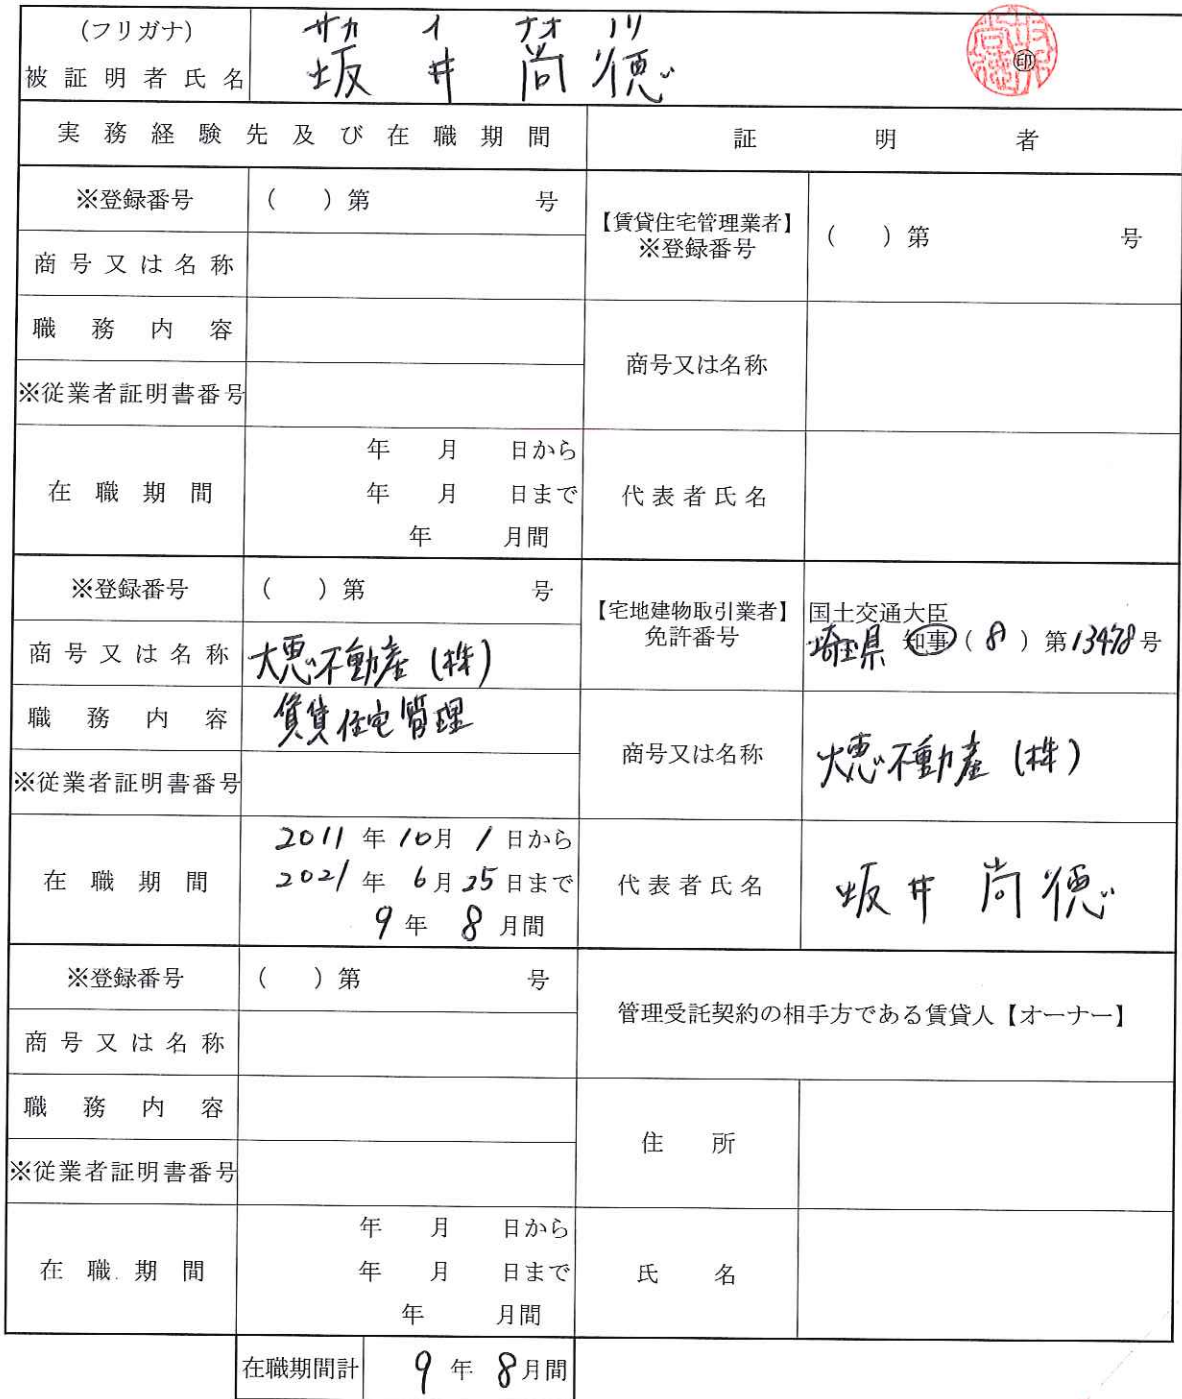 (フリガナ) サカ イ ナオ ノリ
被証明者氏名 坂井 尚徳 ㊞
実務経験先及び在職期間 証明者
※登録番号 ( )第 号
商号又は名称
職務内容
※従業者証明書番号
在職期間
年 月 日から
年 月 日まで
年 月間
【賃貸住宅管理業者】
※登録番号 ( )第 号
商号又は名称
代表者氏名
※登録番号 ( )第 号
商号又は名称 大恵不動産(株)
職務内容 賃貸住宅管理
※従業者証明書番号
在職期間
2011年10月1日から
2021年6月25日まで
9年8月間
【宅地建物取引業者】
免許番号
国土交通大臣
埼玉県 知事(8)第13478号
商号又は名称 大恵不動産(株)
代表者氏名 坂井 尚徳
※登録番号 ( )第 号
商号又は名称
職務内容
※従業者証明書番号
在職期間
年 月 日から
年 月 日まで
年 月間
管理受託契約の相手方である賃貸人【オーナー】
住所
氏名
在職期間計 9年8月間